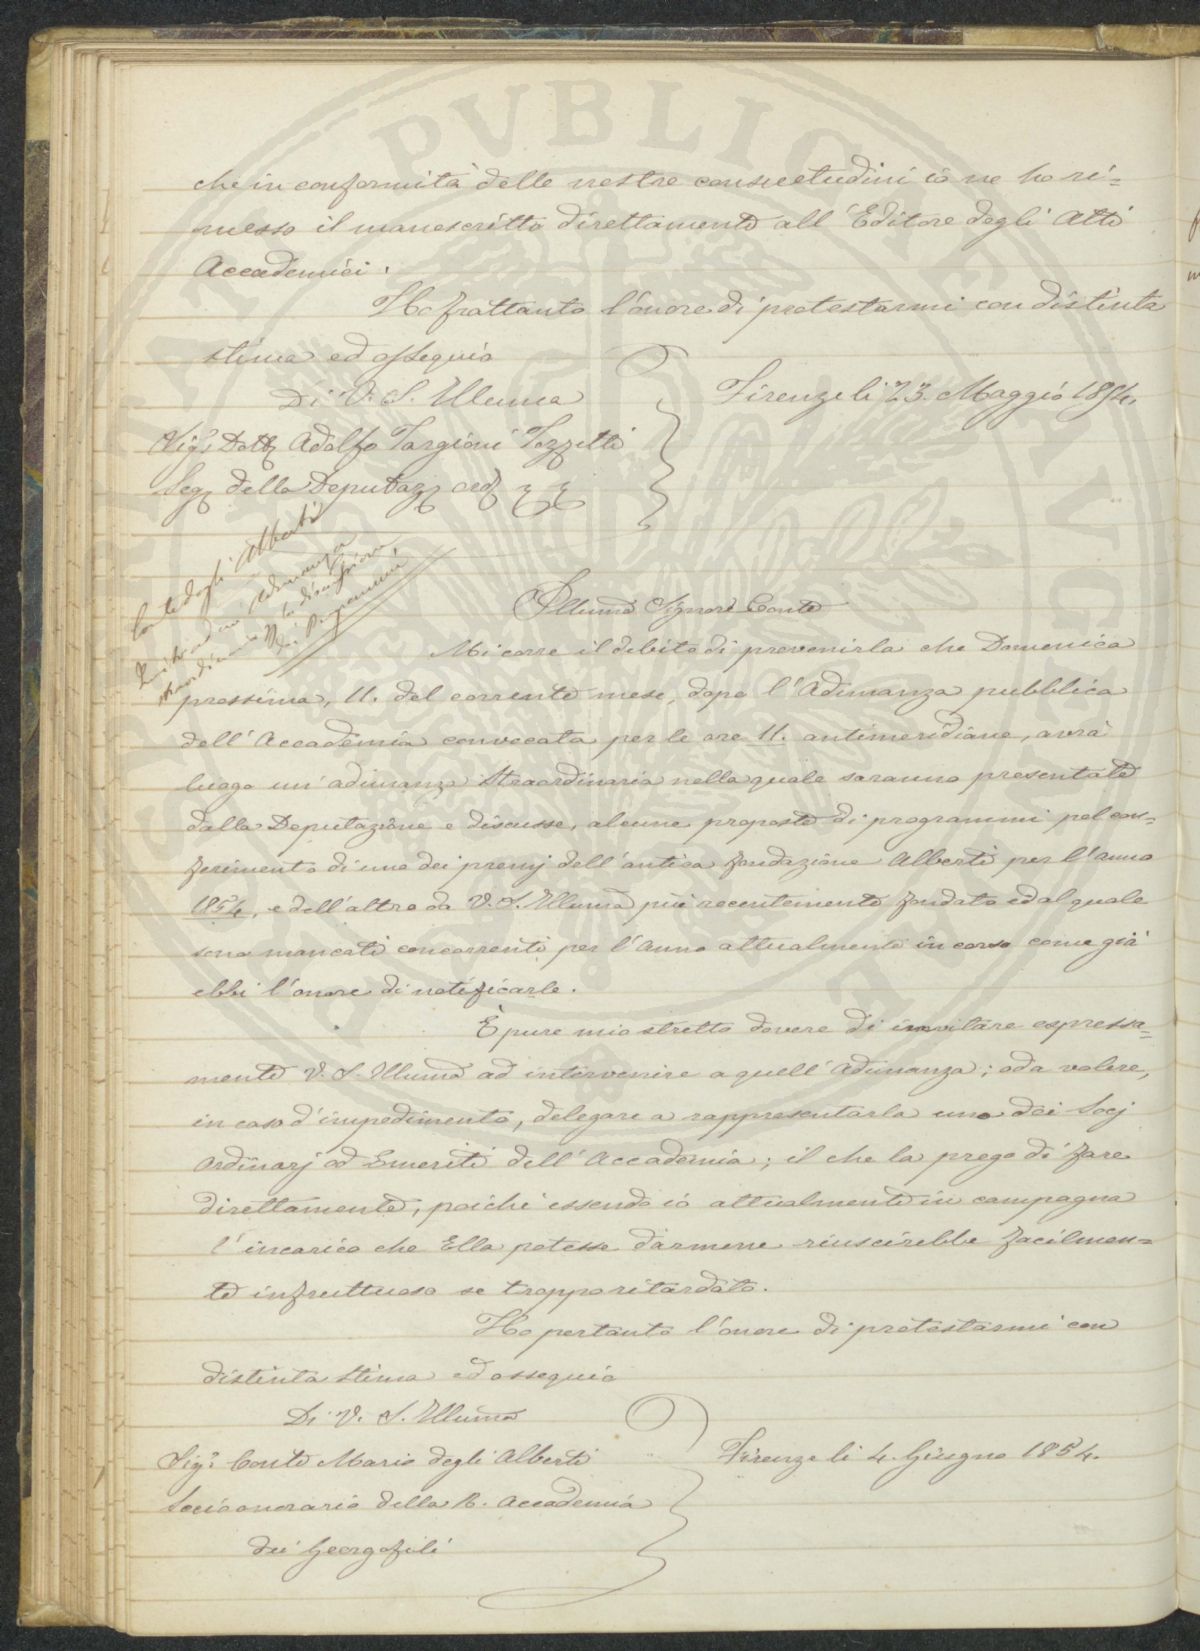 che in conformità delle nostre consuetudini io ne ho ri=
messo il manoscritto direttamente all'Editore degli Atti
Accademici.
Ho frattanto l'onore di protestarmi con distinta
stima ed ossequio
Di V. S. Illuma
Firenze li 23. Maggio 1854.
Sigr Dott Adolfo Targioni Tozzetti
Seg della Deputaz ced
Conte degli Alberti
Invito ad un'adunanza
straordinaria p la discussione
dei Programmi
Illumo Signore Conte
Mi corre il debito di prevenirla che Domenica
prossima, 11. del corrente mese, dopo l'Adunanza pubblica
dell'Accademia convocata per le ore 11. antimeridiane, avrà
luogo un'adunanza straordinaria nella quale saranno presentate
dalla Deputazione e discusse, alcune proposte di programmi pel con=
ferimento di uno dei premj dell'antica fondazione Alberti per l'anno
1854, e dell'altro da V. S. Illuma più recentemente fondato ed al quale
sono mancati concorrenti per l'anno attualmente in corso come già
ebbi l'onore di notificarle.
È pure mio stretto dovere di invitare espressa=
mente V. S. Illuma ad intervenire a quell'adunanza; o da volere,
in caso d'impedimento, delegare a rappresentarla uno dei Socj
Ordinarj od Emeriti dell'Accademia; il che la prego di fare
direttamente, poichè essendo io attualmente in campagna
l'incarico che Ella potesse darmene riuscirebbe facilmen=
te infruttuoso se troppo ritardato.
Ho pertanto l'onore di protestarmi con
distinta stima ed ossequio
Di V. S. Illuma
Firenze li 4. Giugno 1854.
Sigr Conte Mario degli Alberti
Socio onorario della R. Accademia
dei Georgofili
PVBLICAE